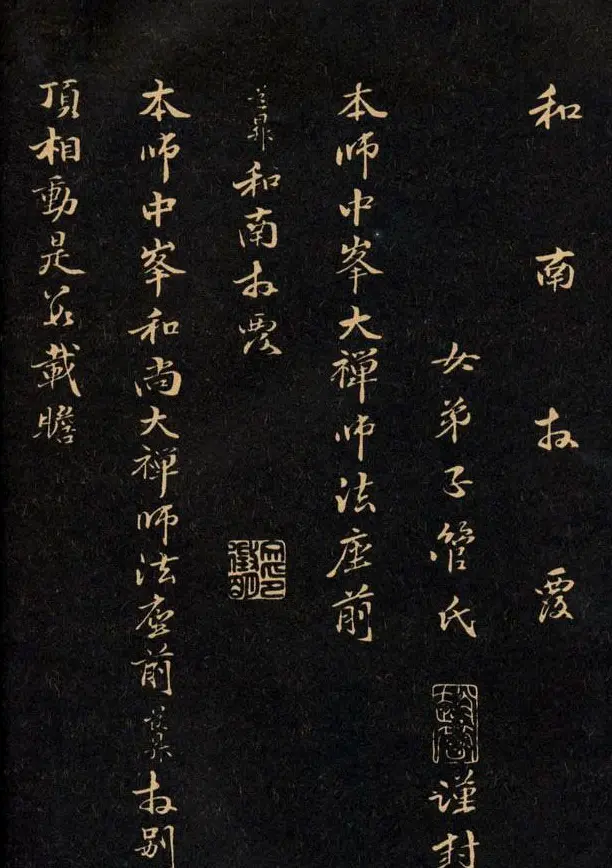 和南拜覆
女弟子管氏謹封
本師中峯大禪師法座前
道昇和南拜覆
本師中峯和尚大禪師法座前道昇拜别
頂相動是數載瞻